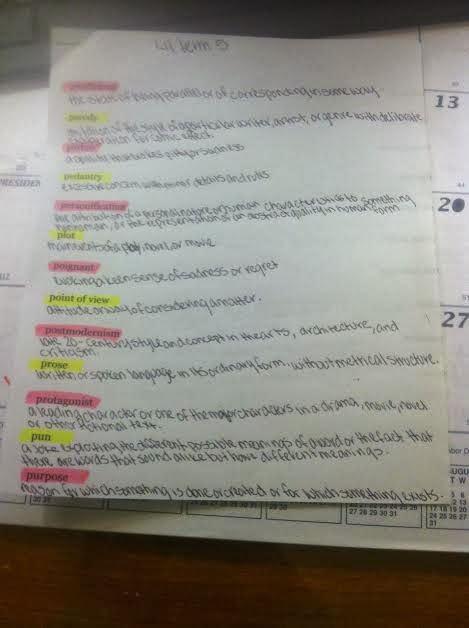 Lit Terms
parallelism
the state of being parallel or of corresponding in some way
parody
imitation of the style of a particular writer, artist, or genre with deliberate
exaggeration for comic effect.
pathos
a quality that evokes pity or sadness
pedantry
excessive concern with minor details and rules
personification
the attribution of a personal nature or human characteristics to something
nonhuman, or the representation of an abstract quality in human form
plot
main events of a play, novel, or movie
poignant
evoking a keen sense of sadness or regret
point of view
attitude or way of considering a matter.
postmodernism
late 20-century style and concept in the arts, architecture, and
criticism.
prose
written or spoken language in its ordinary form, without metrical structure.
protagonist
a leading character or one of the major characters in a drama, movie, novel
or other fictional text.
pun
a joke exploiting the different possible meanings of a word or the fact that
there are words that sound alike but have different meanings.
purpose
reason for which something is done or created or for which something exists.
PRESIDEN
13
20
27